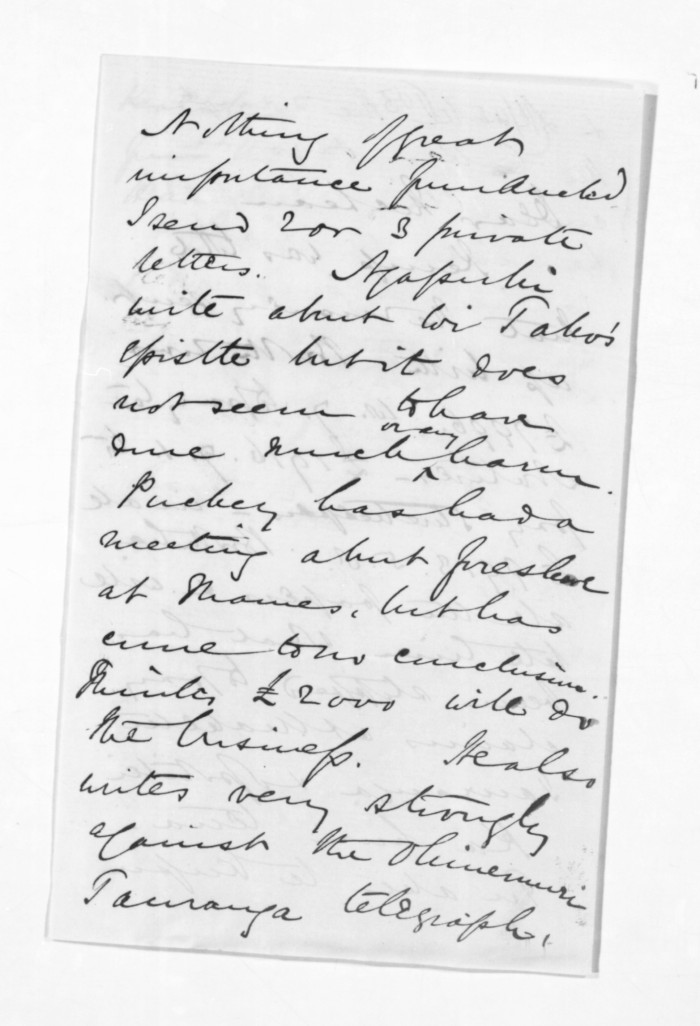 Nothing of great
importance from Auckld
I send 2 or 3 private
letters.
write about Wi Tako's
epistle but it does
not seem to have
done much or any harm.
Puckey has had a
meeting about foreshore
at Thames, but has
come to no conclusion.
Thinks £2000 will do
the business. He also
writes very strongly
against the Ohinemuri
Tauranga telegraph.